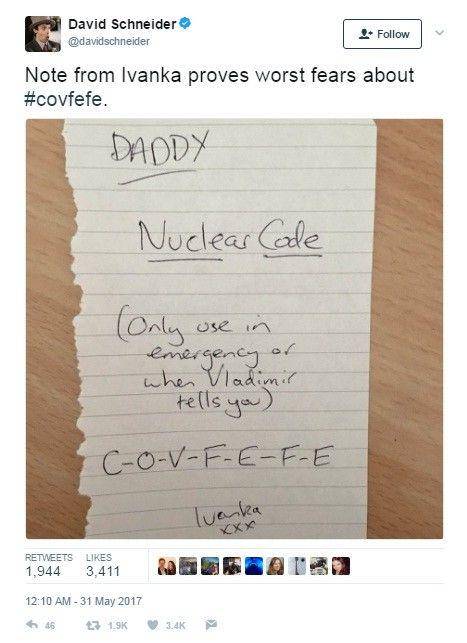 David Schneider
@davidschneider
Follow
Note from Ivanka proves worst fears about
#covfefe.
DADDY
Nuclear Code
(Only use in
emergency or
when Vladimir
tells you)
C-O-V-F-E-F-E
Ivanka
xxx
RETWEETS LIKES
1,944 3,411
12:10 AM - 31 May 2017
46 1.9K 3.4K